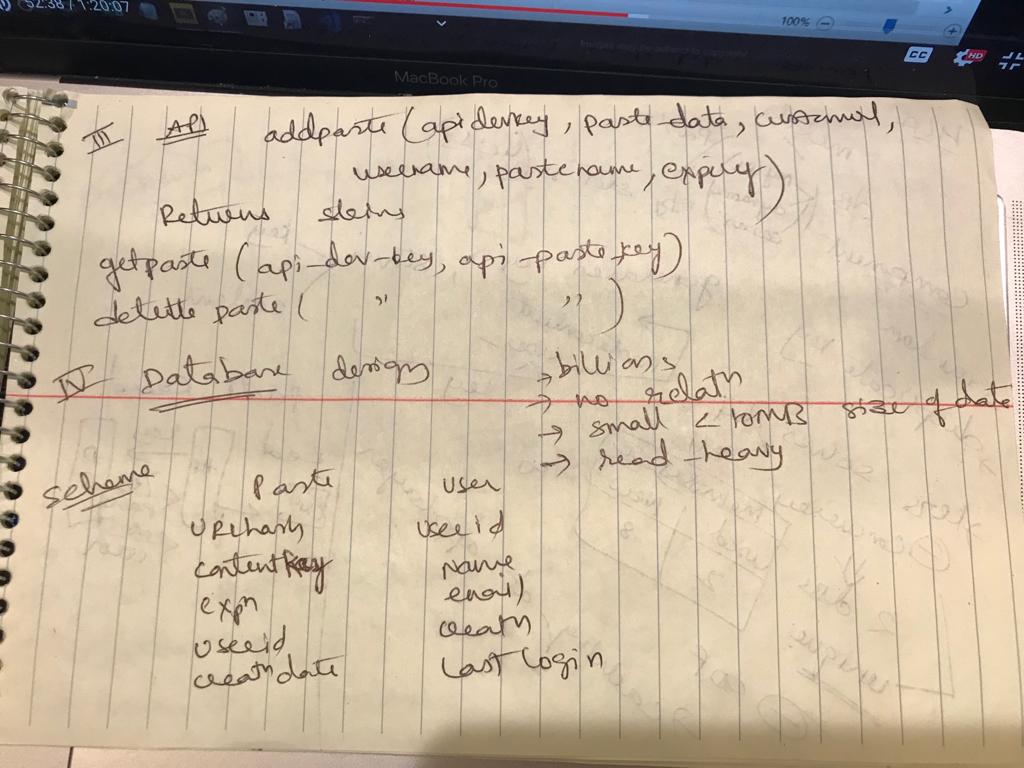 52:38 / 1:20:07
100%
CC
HD
MacBook Pro
III API addpaste (api devkey, paste-data, customurl,
username, pastename, expiry)
Returns
getpaste (api-dev-key, api-paste-key)
delette paste ( " " )
IV Database design → billions
→ no relatn
→ small < 10MB size of data
→ read-heavy
scheme
Paste user
URLhash userid
contentkey Name
expn email
userid creatn
creatn date Last Login